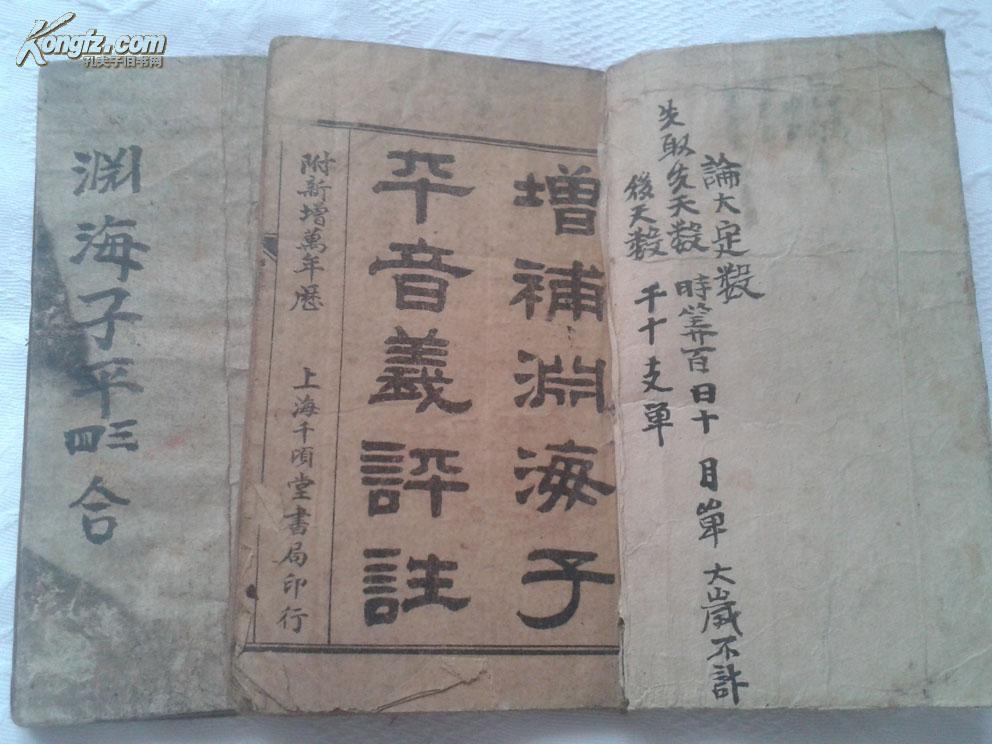 Kongfz.com
孔夫子旧书网
論大定数
時筭百日十 月单 大歲不計
先取先天数
後天数 千十支单
增補淵海子
平音義評註
附新增萬年歷 上海千頃堂書局印行
渊海子平三四合